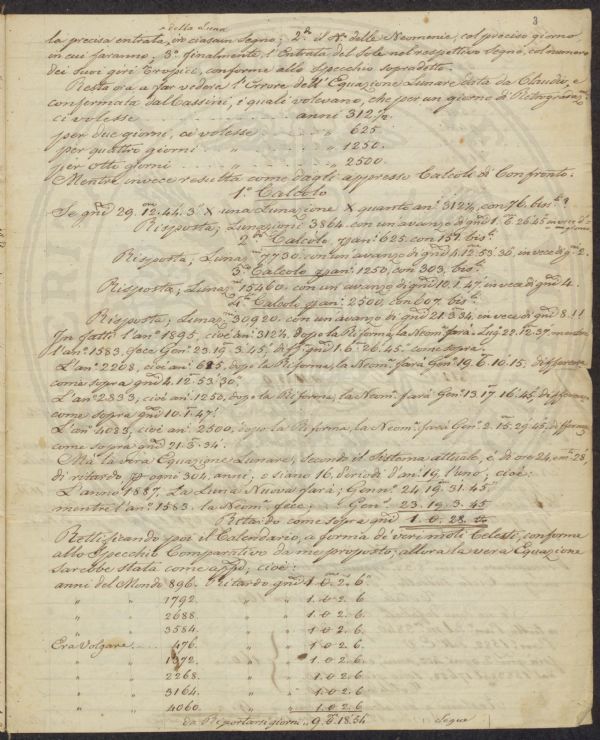 3
della Luna
la precisa entrata, in ciascun Segno; 2.° il N.° delle Neomenie, col preciso giorno
in cui faranno; 3.° finalmente, l'Entrata del Sole nel rispettivo Segno, col numero
dei suoi giri Tropici, conforme allo Specchio sopradetto.
Resta ora a far vedere l'Errore dell'Equazione Lunare data da Claudio, e
confermata dal Cassini, i quali volevano, che per un giorno di Retrograd.
ci volesse anni 312 1/2
per due giorni, ci volesse " " 625.
per quattro giorni " " 1250.
per otto giorni " " 2500.
Mentre invece resulta come dagli appresso Calcoli di Confronto.
1.° Calcolo
Se gnī 29. 12. 44. 3. X una Lunazione X quante an. 312 1/2, con 76. bis.
Risposta; Lunazioni 3864. con un avanzo di gnī 1. 6. 26. 45 in vece d'
2.° Calcolo p an. 625. con 151. bis.
Risposta; Lunaz. 7730. con un avanzo di gnī 4. 12. 53. 36, in vece di g. 2.
3.° Calcolo p an. 1250, con 303. bis.
Risposta; Lunaz. 15460. con un avanzo di gnī 10. 1. 47. in vece di gnī 4.
4.° Calcolo p an. 2500, con 607. bis.
Risposta; Lunaz. 30920. con un avanzo di gnī 21. 3. 34. in vece di gnī 8.!!
In fatti l'an. 1895, cioè an. 312 1/2 dopo la Riforma, la Neom. farà Lug. 22. 12. 37, mentre
l'an. 1583. fece Gen. 23. 19. 3. 45. diff. gnī 1. 6. 26. 45. come sopra.
L'an. 2208, cioè an. 625, dopo la Riforma, la Neom. farà Gen. 19. 6. 10. 15. differenza
come sopra gnī 4. 12. 53. 30.
L'an. 2833, cioè an. 1250, dopo la Riforma, la Neom. farà Gen. 13. 17. 16. 45, differenza
come sopra gnī 10. 1. 47.
L'an. 4083, cioè an. 2500, dopo la Riforma, la Neom. farà Gen. 2. 15. 29. 45. differenza
come sopra gnī 21. 3. 34.
Ma la vera Equazione Lunare, secondo il Sistema attuale, è di ore 24, e m. 28,
di ritardo p ogni 304, anni, o siano 16. Periodi d'an. 19. l'uno, cioè:
L'anno 1887. La Luna Nuova farà; Genn. 24. 19. 31. 45
mentre l'an. 1583. la Neom. fece; Gen. 23. 19. 3. 45
Ritardo come sopra gnī 1. 0. 28. 0
Rettificando poi il Calendario, a forma di veri moti Celesti, conforme
allo Specchio Comparativo da me proposto, allora la vera Equazione
sarebbe stata come app., cioè:
anni del Mondo 896. Ritardo gnī 1. 0. 2. 6
" 1792. " " 1. 0. 2. 6.
" 2688. " " 1. 0. 2. 6.
" 3584. " " 1. 0. 2. 6.
Era Volgare 476. " " 1. 0. 2. 6.
" 1372. " " 1. 0. 2. 6.
" 2268. " " 1. 0. 2. 6.
" 3164. " " 1. 0. 2. 6.
" 4060. " " 1. 0. 2. 6
da Riportarsi giorni 9. 0. 18. 54
Segue